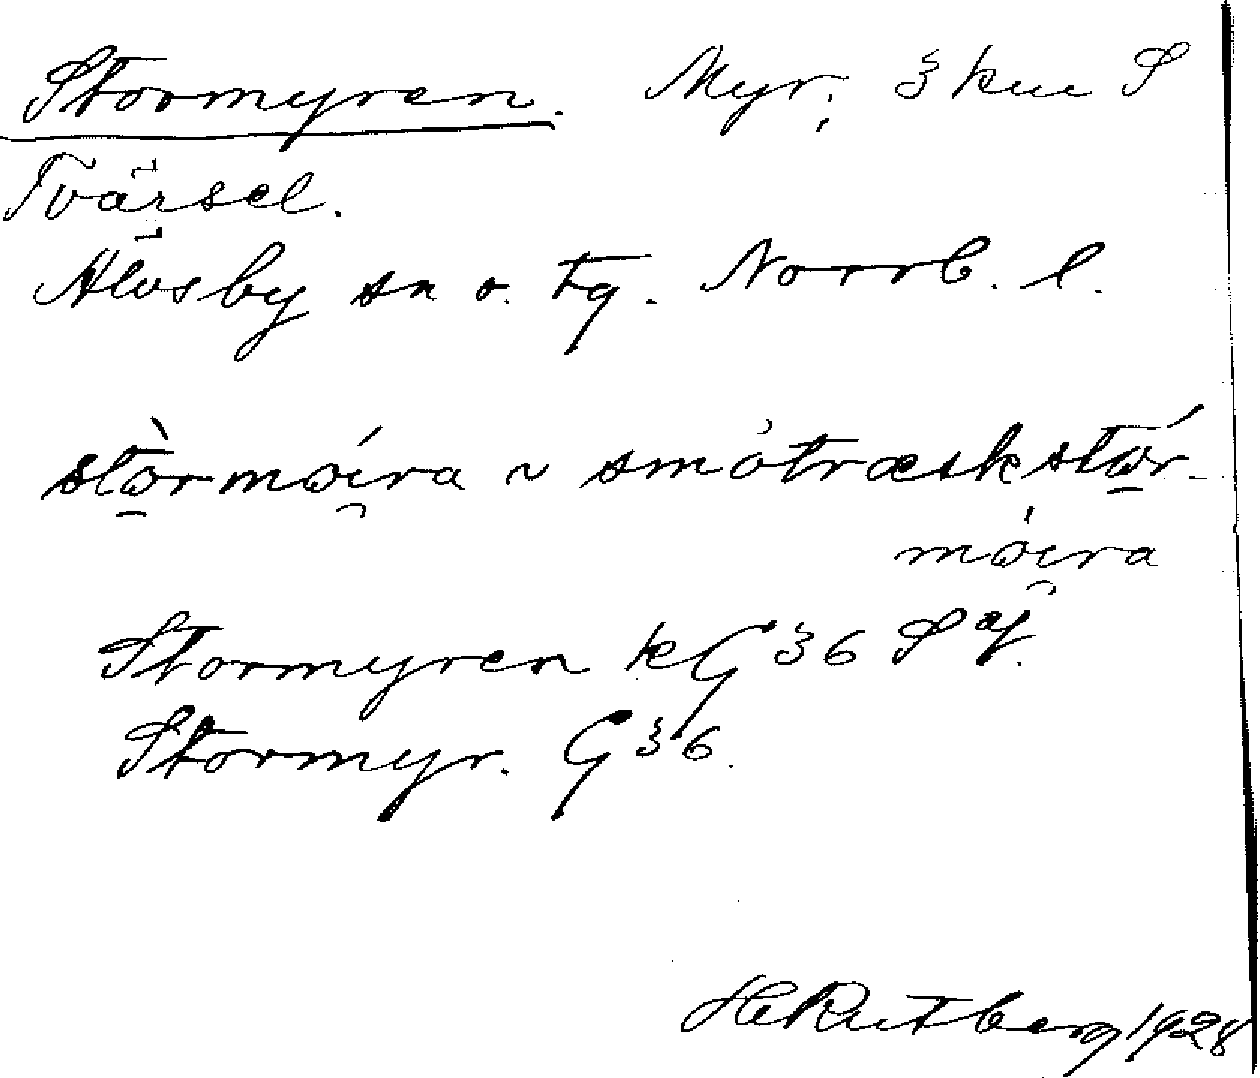 Stormyren. Myr; 3 km S
Tvärsel.
Älvsby sn o. tg. Norrb. l.
stòrmǿira ~ småtræskstór-
mǿira
Stormyren kG 36 S
Stormyr. G 36.
H Rutberg 1928